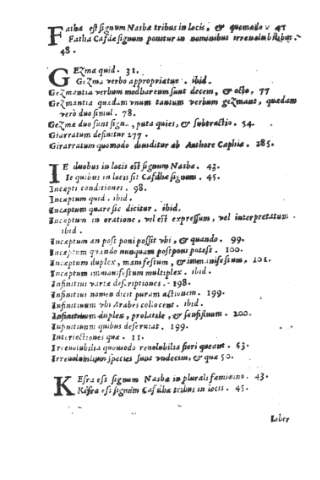 Fatha est signum Nasbæ tribus in locis, et quomodo v 47
Fatha Casdæ signum ponitur in nominibus irreuolubilibus.
48.
GEzma quid. 31.
Gezma verbo appropriatur. ibid.
Gezmantia verbum modhareum sunt decem, et octo, 77
Gezmantia quædam vnum tantum verbum gezmant, quædam
vero duo simul. 78.
Gezmæ duo sunt sign., puta quies, et subtractio. 54.
Giarratum definitur 177.
Giarratum quomodo diuiditur ab Authore Caphiæ. 285.
IE duobus in locis est signum Nasbæ. 43.
Ie quibus in locis sit Casdhæ signum. 45.
Incepti conditiones. 98.
Inceptum quid. ibid.
Inceptum quare sic dicitur. ibid.
Inceptum in oratione, vel est expressum, vel interpretatum.
ibid.
Inceptum an post poni possit vbi, et quando. 99.
Inceptum quando nunquam postponi potest. 100.
Inceptum duplex, manifestum, et immanifestum, 101.
Inceptum immanifestum multiplex. ibid.
Infinitiui variæ descriptiones. 198.
Infinitiuus nomen dicit puram actionem. 199.
Infinitiuum vbi Arabes collocent. ibid.
Infinitiuum duplex, probatale, et sensisuum. 200.
Infinitiuum quibus deseruiat. 199.
Interiectiones quæ. 11.
Irreuolubilia quomodo reuolubilia fieri queant. 53.
Irreuolutionis species sunt vndecim, et quæ 50.
KEsra est signum Nasbæ in plurali fæminino. 43.
Kesra est signum Casdhæ tribus in locis. 45.
Liber